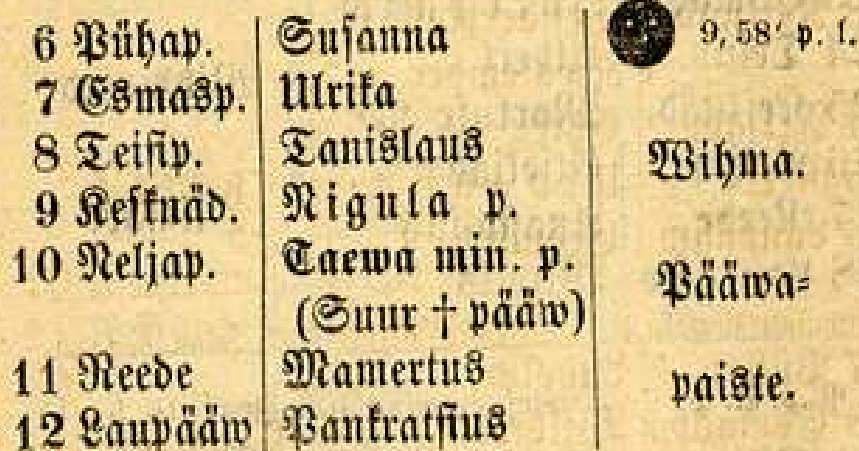 6 Pühap. Susanna 9,58′ p. l.
7 Esmasp. Ulrika
8 Teisip. Tanislaus Wihma.
9 Kesknäd. Nigula p.
10 Neljap. Taewa min. p. Pääwa⸗
(Suur † pääw)
11 Reede Mamertus paiste.
12 Laupääw Pankratsius